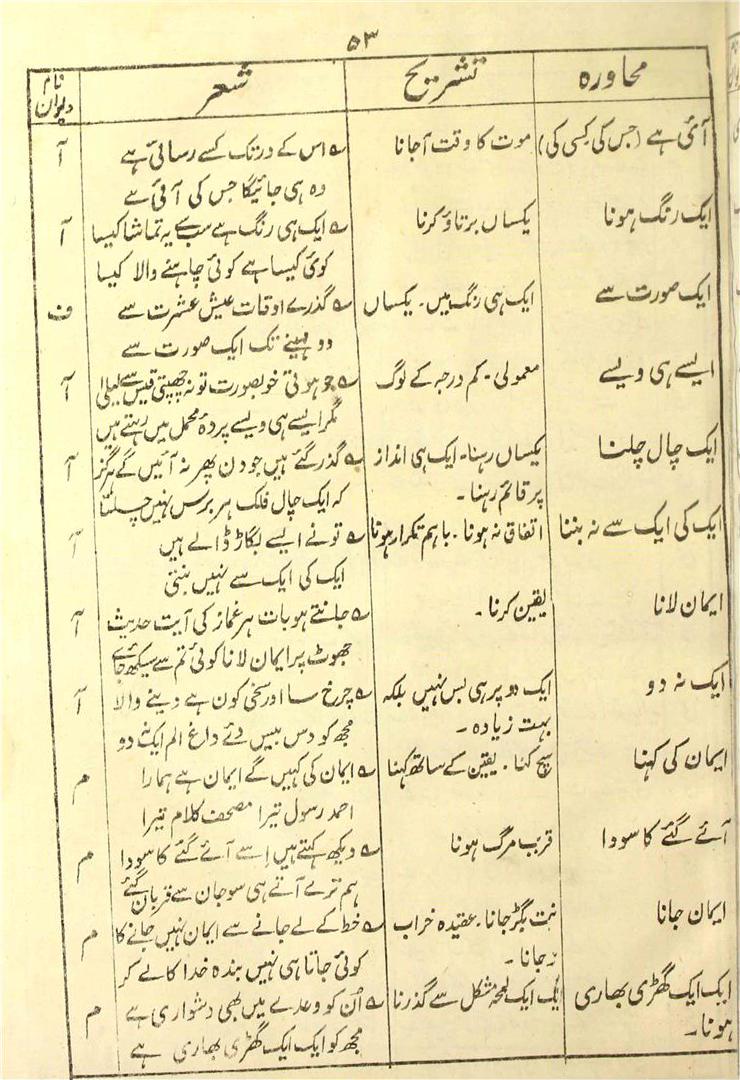 ۵۳
محاورہ تشریح شعر نام دیوان
آئی ہے (جس کی کسی کی) موت کا وقت آجانا ؎ اس کے در تک کسے رسائی ہے آ
وہ ہی جائیگا جس کی آئی ہے
ایک رنگ ہونا یکساں برتاؤ کرنا ؎ ایک ہی رنگ ہے سب سے یہ تماشا کیسا آ
کوئی کیسا ہے کوئی چاہنے والا کیسا
ایک صورت سے ایک ہی رنگ میں ۔ یکساں ؎ گذرے اوقات عیش عشرت سے ف
دو مہینے تک ایک صورت سے
ایسے ہی ویسے معمولی ۔ کم درجہ کے لوگ ؎ جو ہوتی خوبصورت تو نہ چھپتی قیس سے لیلیٰ آ
مگر ایسے ہی ویسے پردۂ محمل میں رہتے ہیں
ایک چال چلنا یکساں رہنا ۔ ایک ہی انداز ؎ گذر گئے ہیں جو دن پھر نہ آئیں گے ہرگز آ
پر قائم رہنا ۔ کہ ایک چال فلک ہر برس نہیں چلتا
ایک کی ایک سے نہ بننا اتفاق نہ ہونا ۔ باہم تکرار ہونا ؎ تو نے ایسے بگاڑ ڈالے ہیں آ
ایک کی ایک سے نہیں بنتی
ایمان لانا یقین کرنا ۔ ؎ جانتے ہو بات ہر غماز کی آیت حدیث آ
جھوٹ پر ایمان لانا کوئی تم سے سیکھ جائے
ایک نہ دو ایک دو پر ہی بس نہیں بلکہ ؎ چرخ سا اور سخی کون ہے دینے والا آ
بہت زیادہ ۔ مجھ کو دس بیس دئے داغ الم ایک نہ دو
ایمان کی کہنا سچ کہنا ۔ یقین کے ساتھ کہنا ؎ ایمان کی کہیں گے ایمان ہے ہمارا م
احمد رسول تیرا مصحف کلام تیرا
آئے گئے کا سودا قریب مرگ ہونا ؎ دیکھ کہتے ہیں اسے آئے گئے کا سودا م
ہم ترے آتے ہی سو جان سے قربان گئے
ایمان جانا نیت بگڑ جانا ۔ عقیدہ خراب ؎ خط کے لے جانے سے ایمان نہیں جانے کا م
ہوجانا ۔ کوئی جاتا ہی نہیں بندہ خدا کا لے کر
ایک ایک گھڑی بھاری ایک ایک لمحہ مشکل سے گذرنا ؎ اُن کو وعدے میں بھی دشواری ہے م
ہونا ۔ مجھ کو ایک ایک گھڑی بھاری ہے